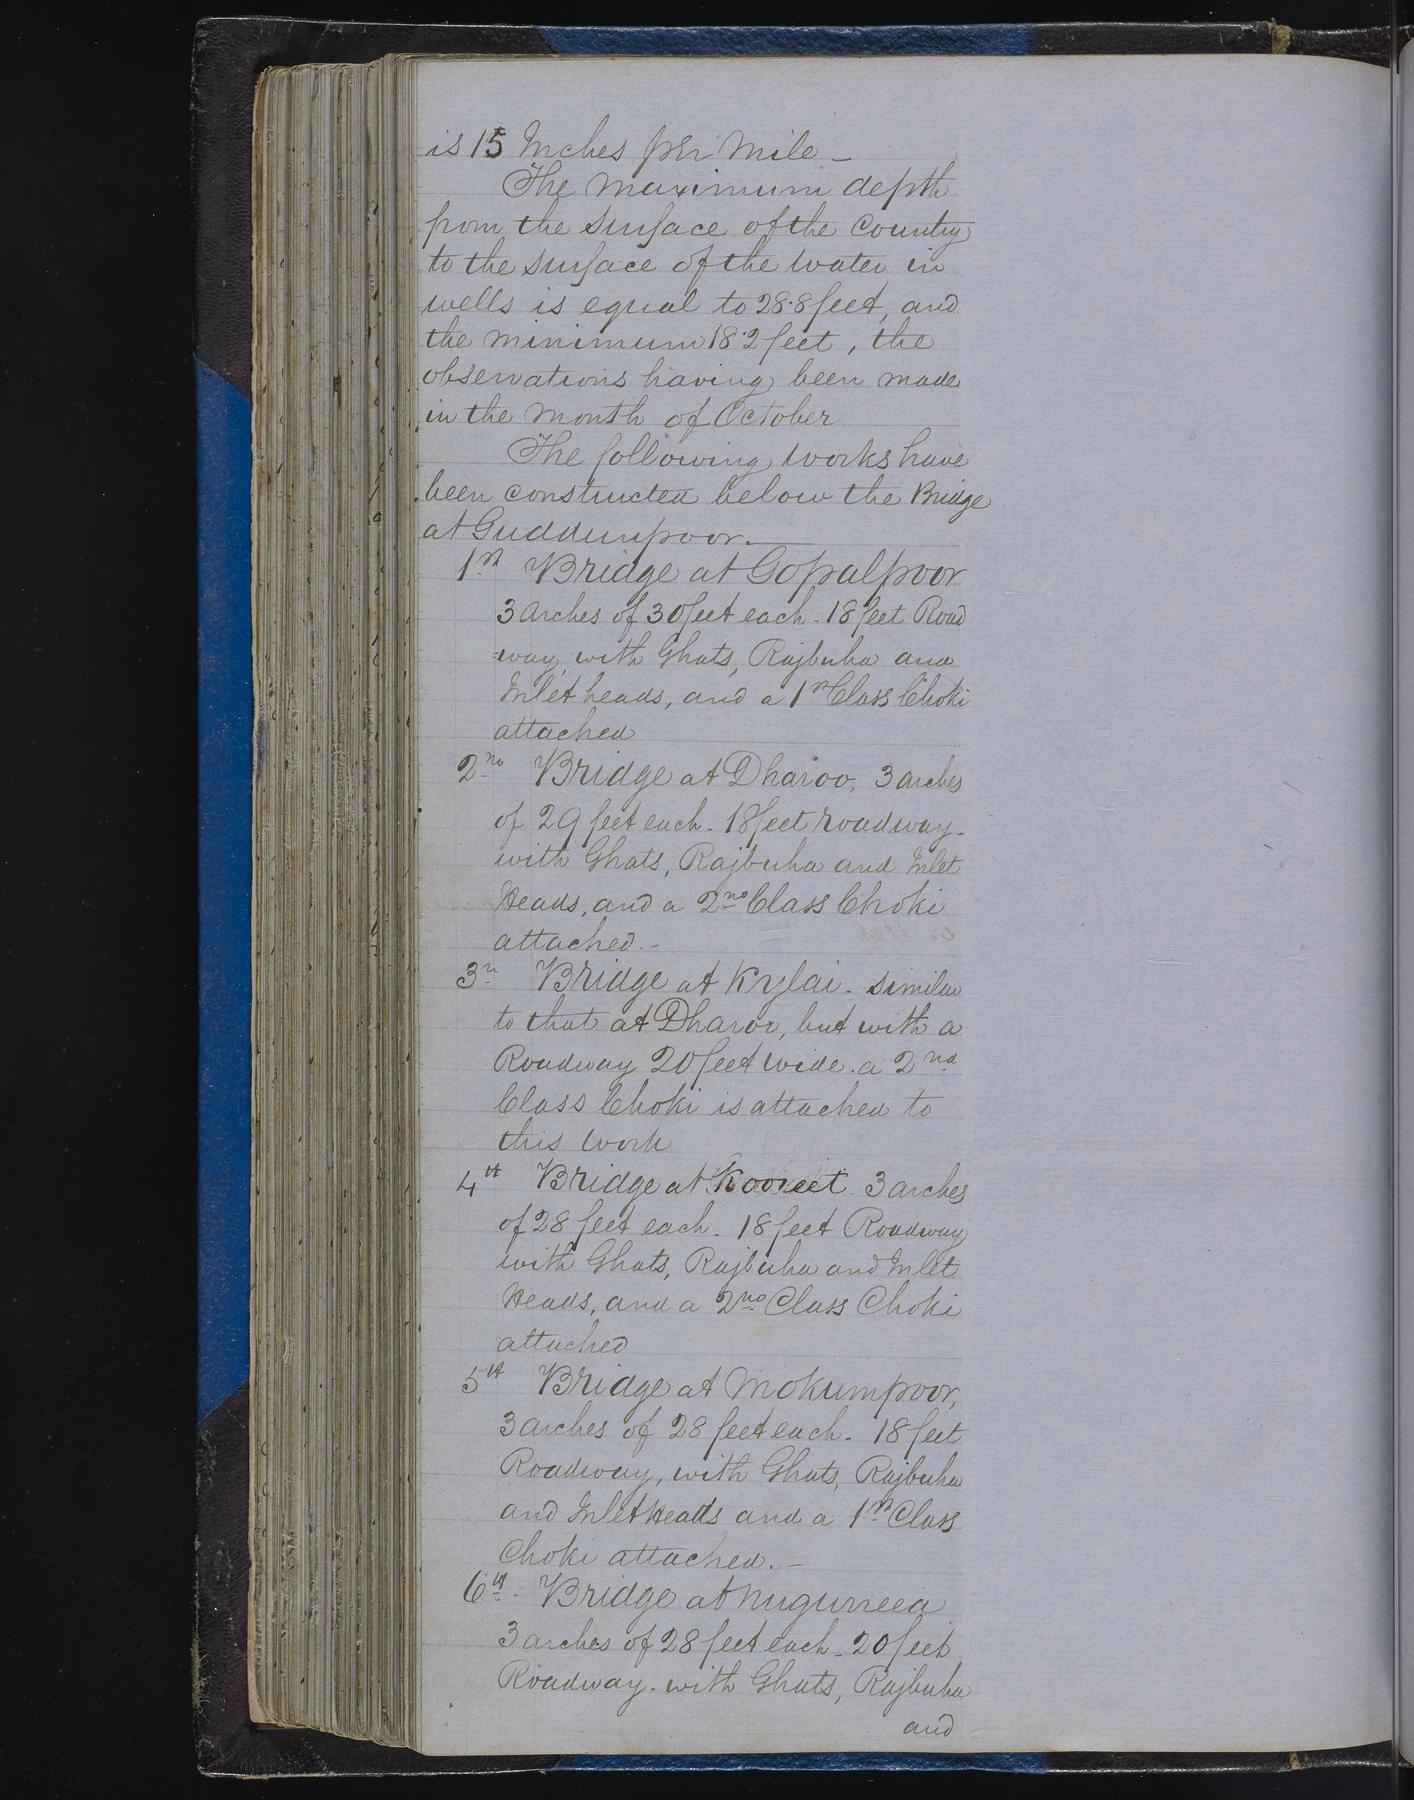 is 15 Inches per Mile _
The Maximum depth
from the surface of the Country
to the surface of the water in
wells is equal to 28.8 feet, and
the minimum 18.2 feet, the
observations having been made
in the Month of October
The following works have
been constructed below the Bridge
at Guddunpoor. _
1st Bridge at Gopalpoor
3 Arches of 30 feet each - 18 feet Road
=way, with Ghats, Rajbuha and
Inlet heads, and a 1st Class Choki
attached
2nd Bridge at Dharoo, 3 arches
of 29 feet each - 18 feet roadway -
with Ghats, Rajbuha and Inlet
Heads, and a 2nd Class Choki
attached. -
3rd Bridge at Kylai - similar
to that at Dharoo, but with a
Roadway 20 feet wide. a 2nd
Class Choki is attached to
this work
4th Bridge at 3 arches
of 28 feet each - 18 feet Roadway
with Ghats, Rajbuha and Inlet
Heads, and a 2nd Class Choki
attached
5th Bridge at Mokumpoor,
3 arches of 28 feet each - 18 feet
Roadway, with Ghats, Rajbuha
and Inlet Heads and a 1st Class
Choki attached. -
6th Bridge at
3 arches of 28 feet each - 20 feet
Roadway - with Ghats, Rajbuha
and